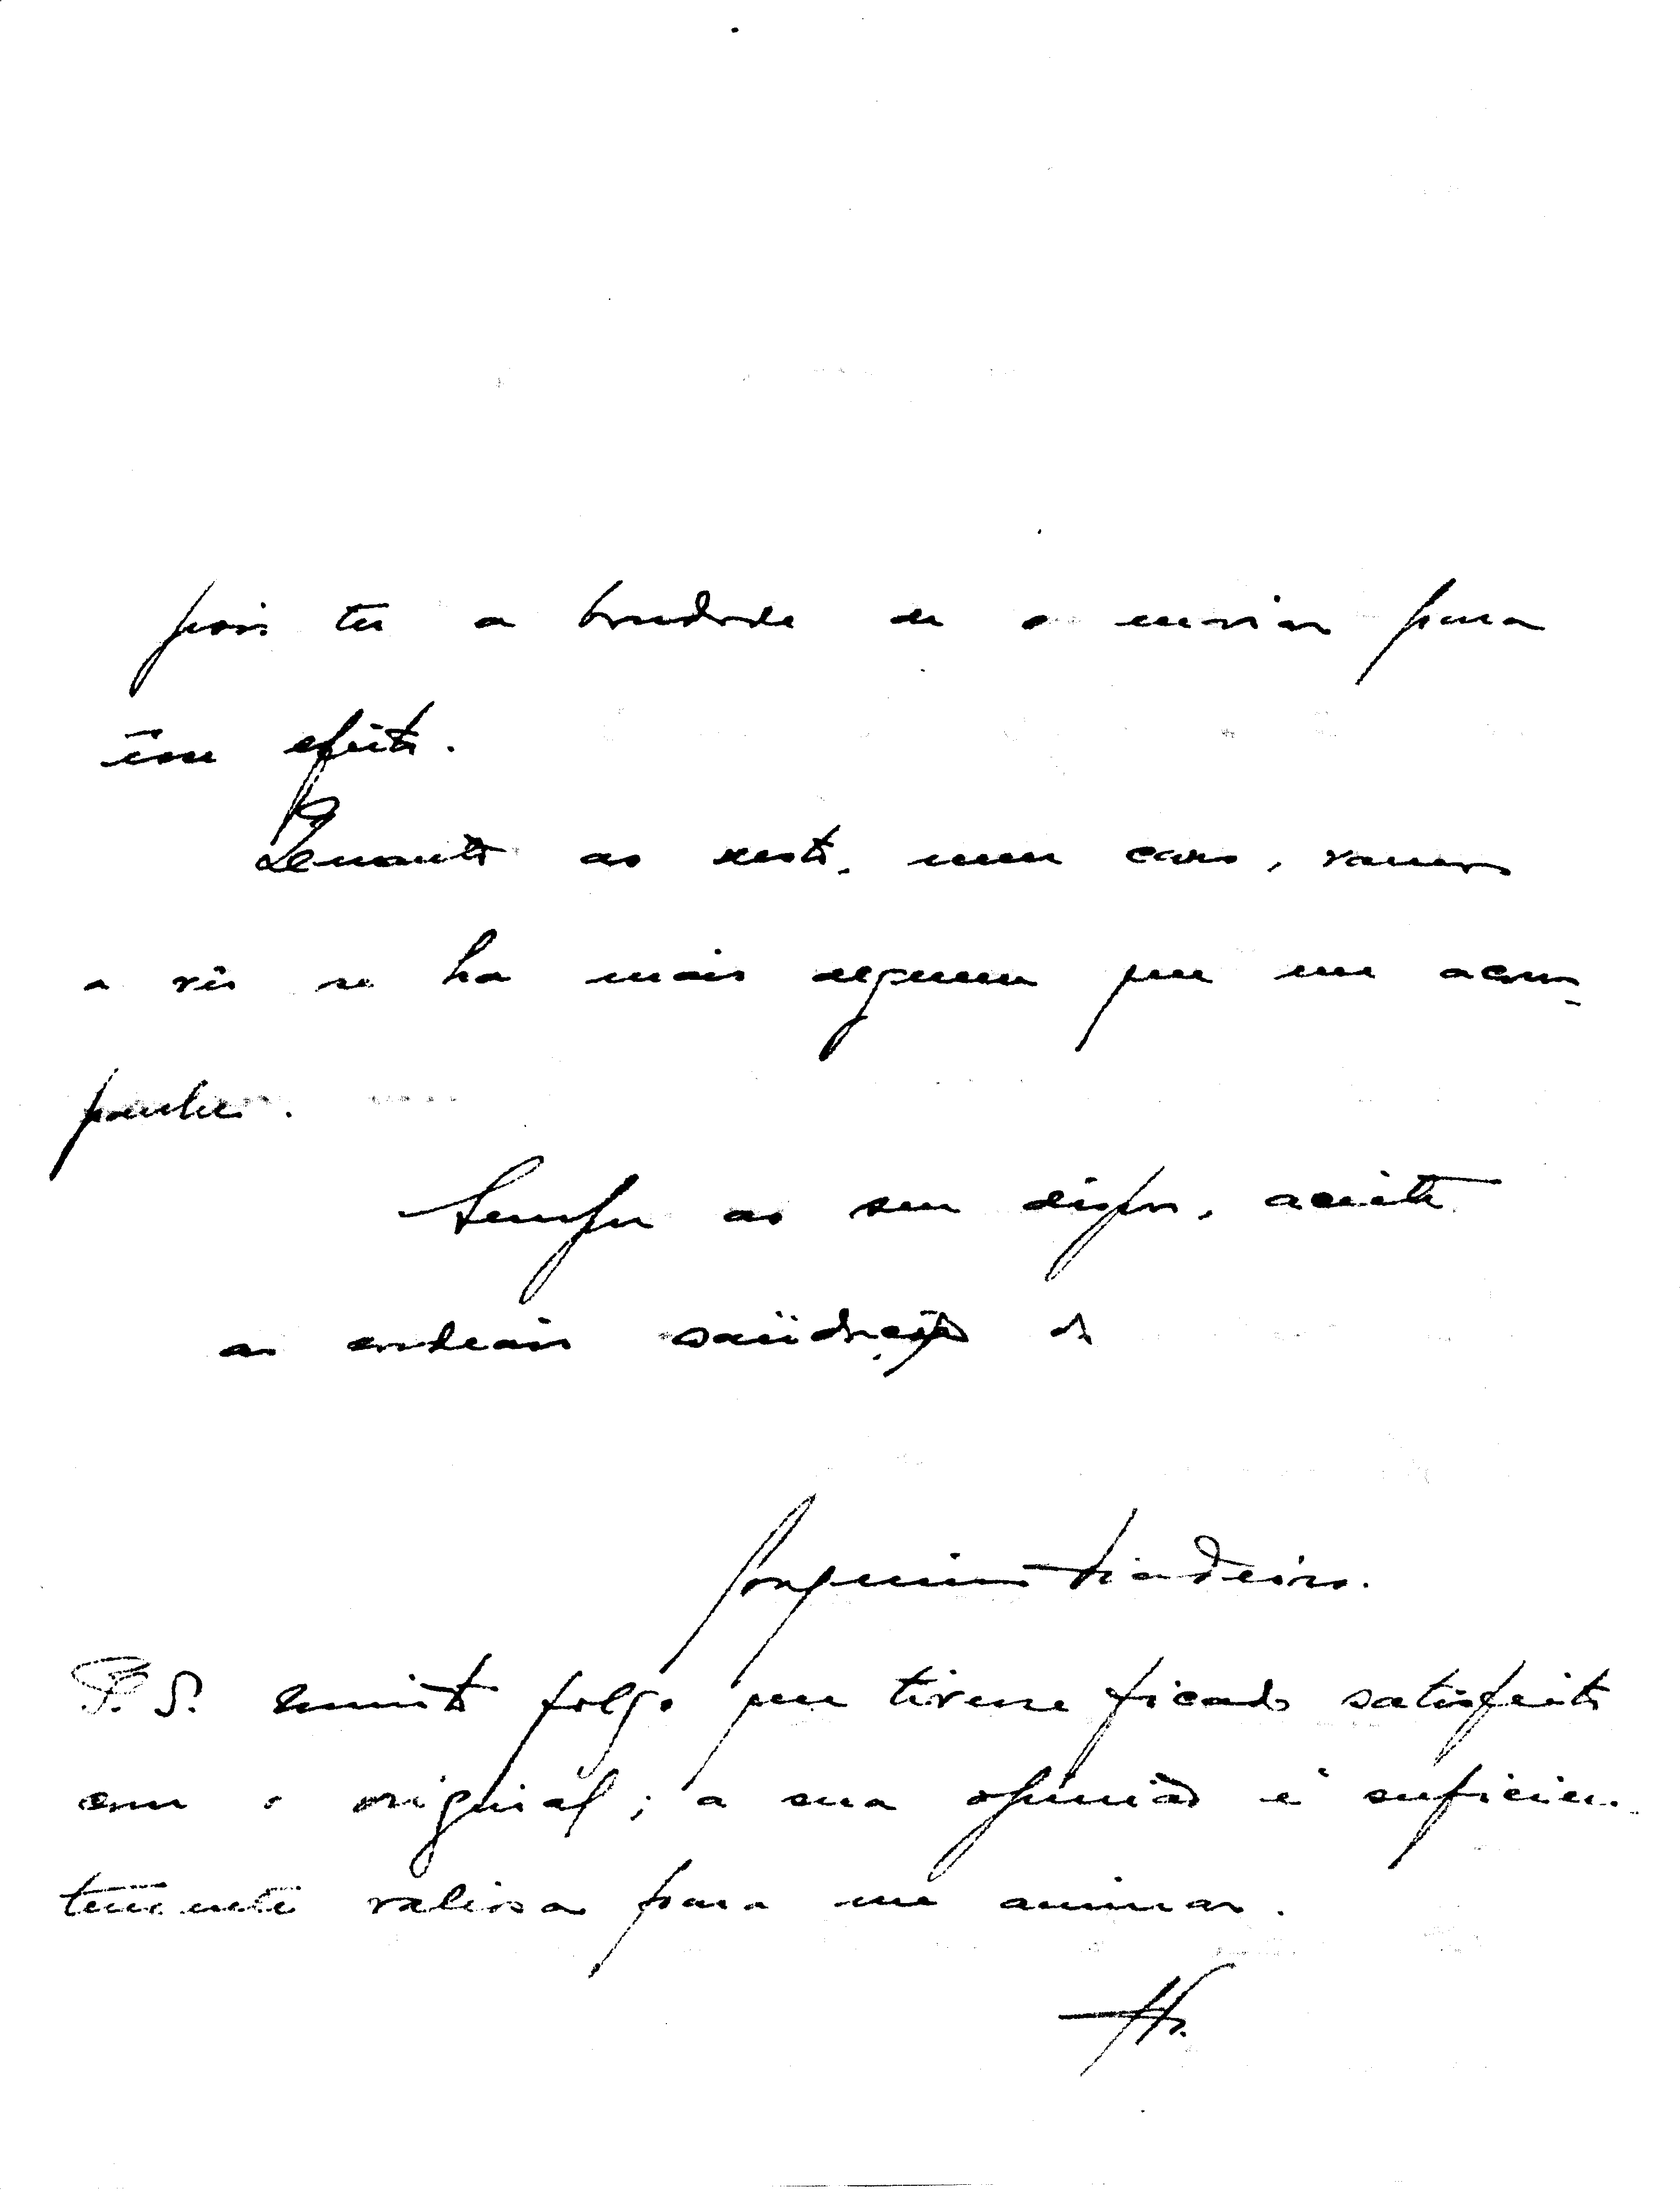 pois ter a bondade de o enviar para
êsse efeito.
Quanto ao resto, meu caro, vamos
a vêr se ha mais alguem que me acom-
panhe.
Sempre ao seu dispor, aceite
as cordeais saüdações de
Joaquim
P.S. Muito folgo que tivesse ficado satisfeito
com o original; a sua opinião é suficien-
temente valiosa para me animar.